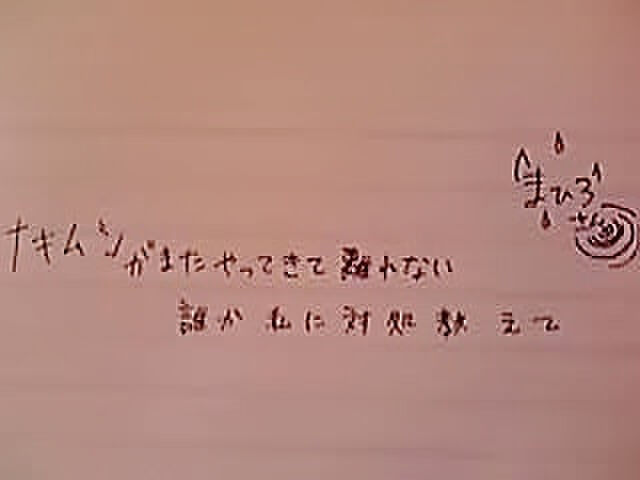 まひろ
ナギムシがまたやってきて離れない
誰か私に対処教えて